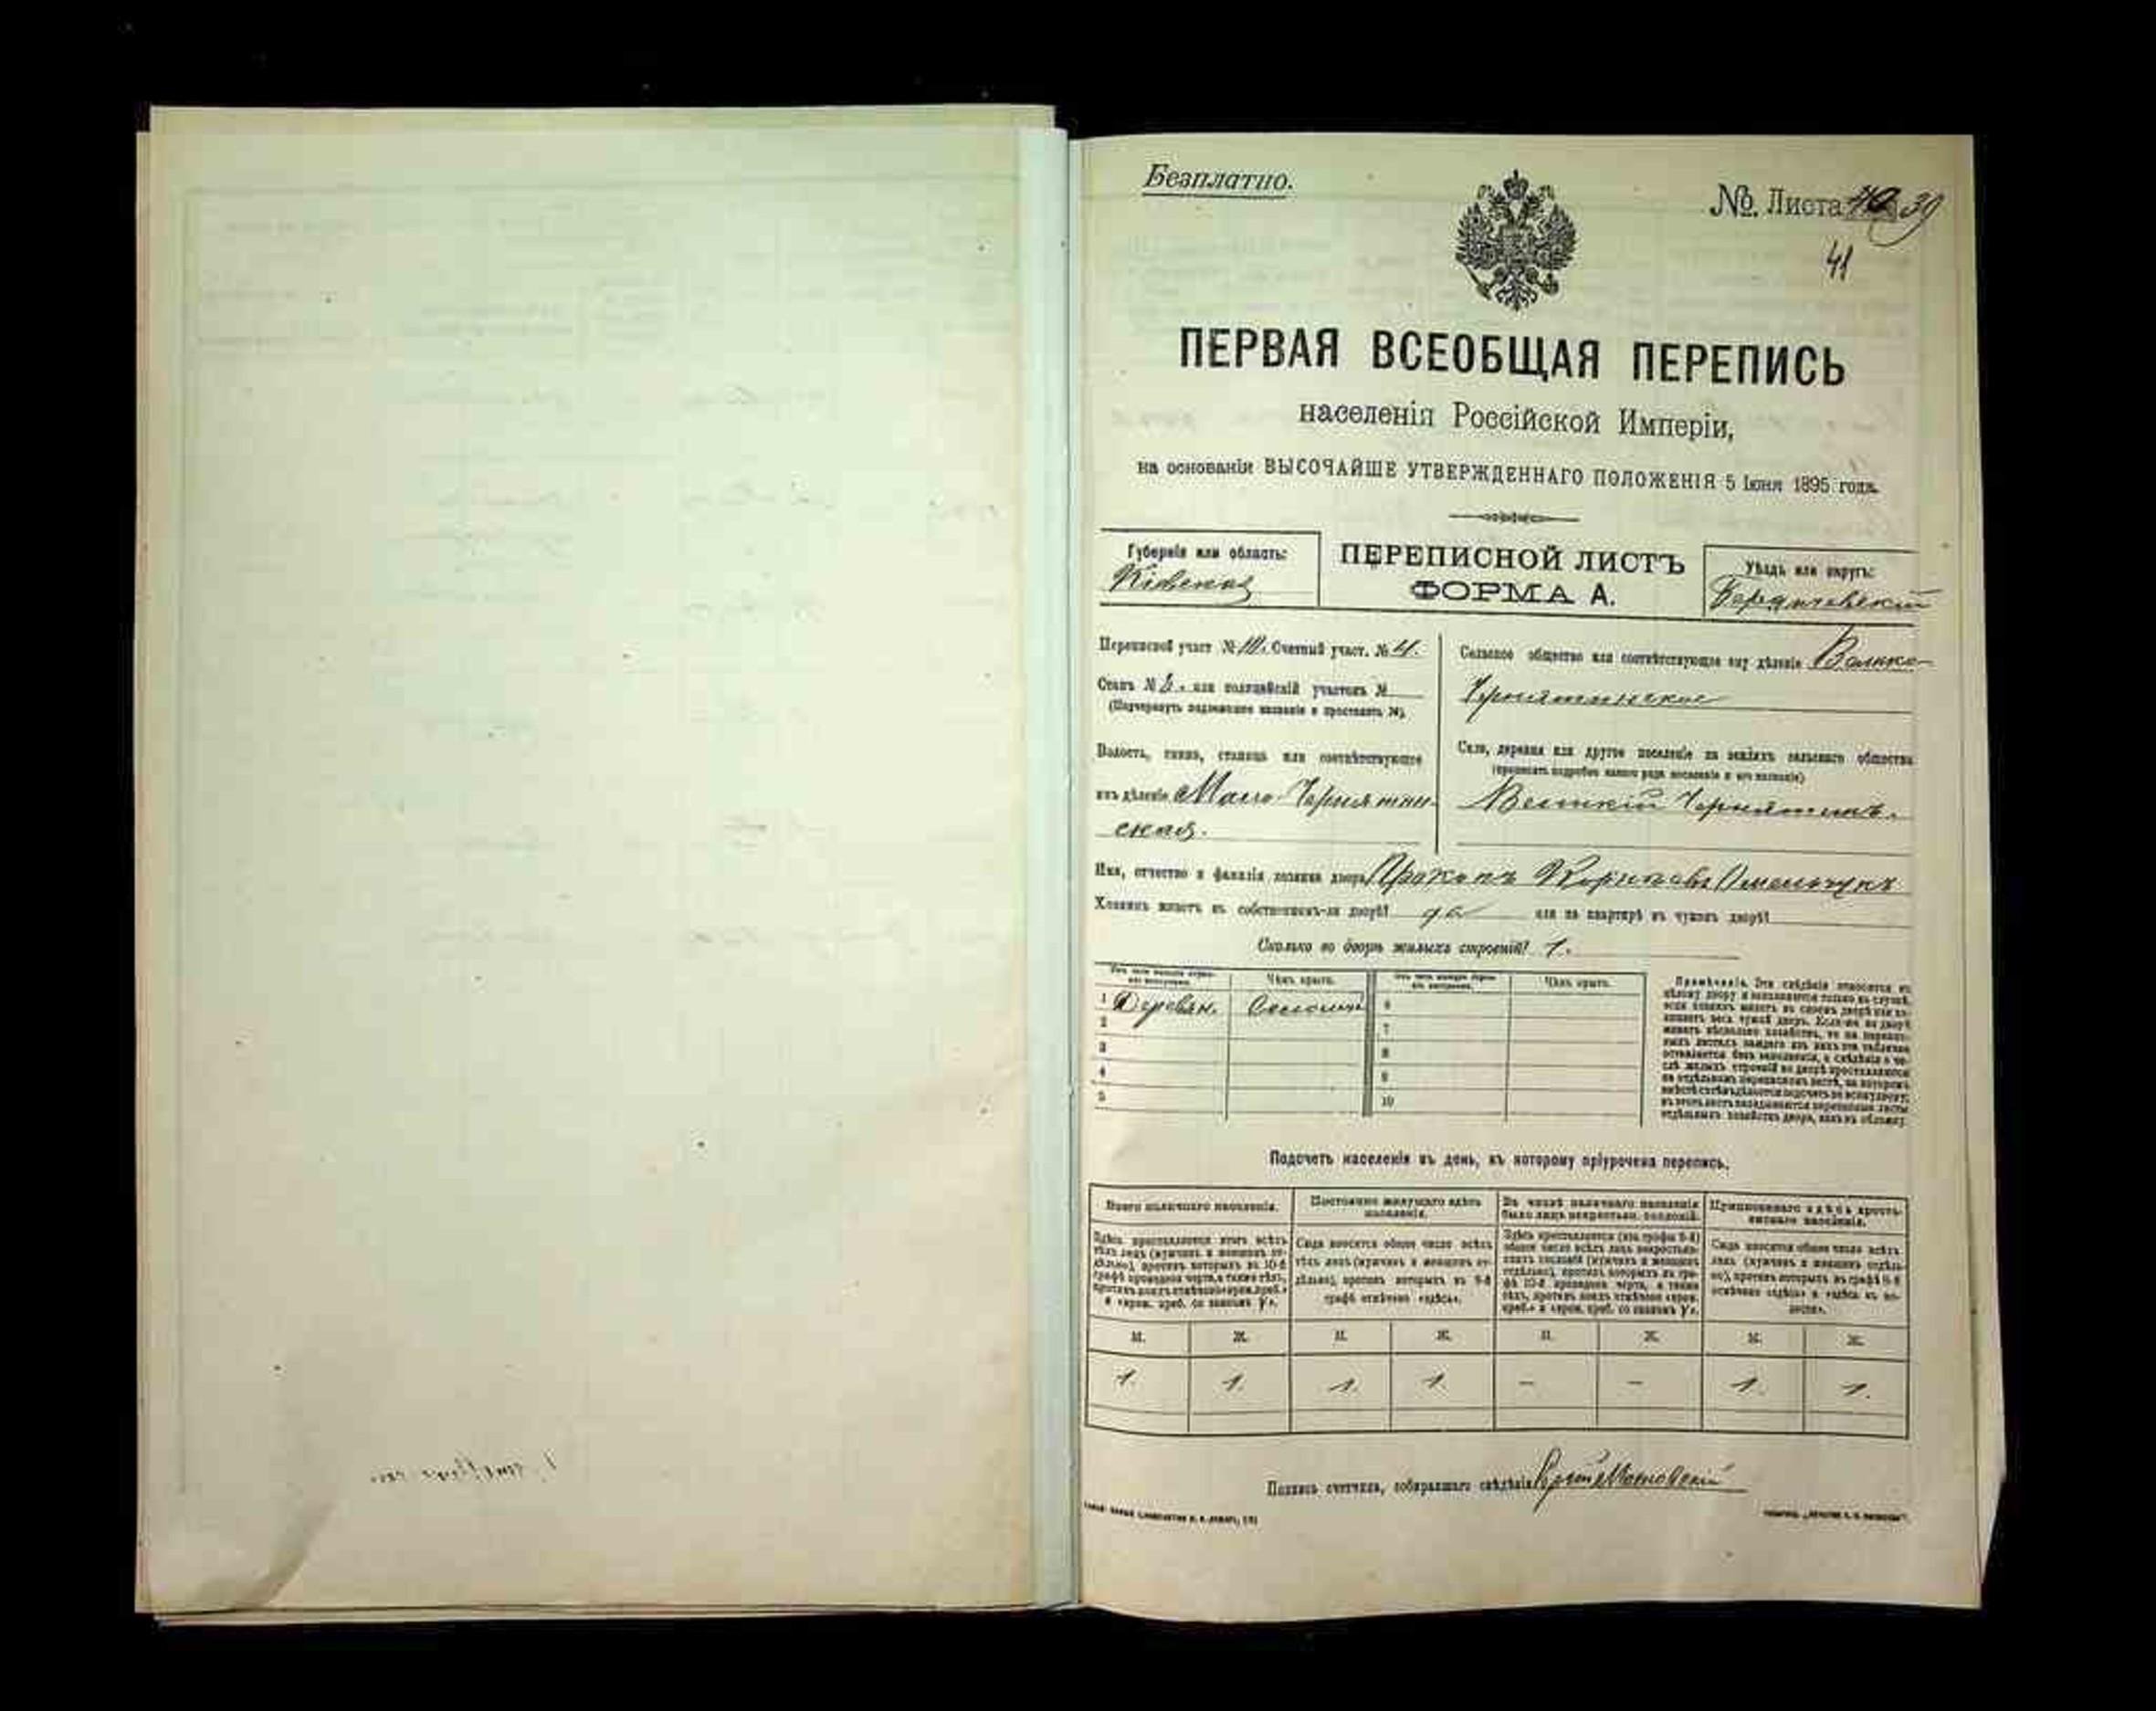 Безплатно.
№. Листа 40 39
41
ПЕРВАЯ ВСЕОБЩАЯ ПЕРЕПИСЬ
населенія Россійской Имперіи,
на основаніи ВЫСОЧАЙШЕ УТВЕРЖДЕННАГО ПОЛОЖЕНІЯ 5 Іюня 1895 года.
Губернія или область:
Кіевская
ПЕРЕПИСНОЙ ЛИСТЪ
ФОРМА А.
Уѣздъ или округъ:
Бердичевскій
Переписной участ. № Счетный участ. № 4.
Станъ № 2. или полицейскій участокъ №
(Подчеркнуть подлежащее названіе и проставить №).
Волость, гмина, станица или соотвѣтствующее
имъ дѣленіе Мало-Чернятин-
ская.
Сельское общество или соотвѣтствующее ему дѣленіе Велико-
Чернятинское
Село, деревня или другое поселеніе на земляхъ сельскаго общества
(прописать подробно какого рода поселеніе и его названіе)
Великій Чернятинъ.
Имя, отчество и фамилія хозяина двора Прокопъ Омельчукъ
Хозяинъ живетъ въ собственномъ-ли дворѣ? да или на квартирѣ въ чужомъ дворѣ?
Сколько во дворѣ жилыхъ строеній? 1.
Изъ чего жилыя строенія построены. Чѣмъ крыто. Изъ чего жилыя строенія построены. Чѣмъ крыто.
1 Деревян. Соломой 6
2 7
3 8
4 9
5 10
Примѣчаніе. Эти свѣдѣнія относятся къ
цѣлому двору и заполняются только въ случаѣ,
если хозяинъ живетъ въ своемъ дворѣ или за-
нимаетъ весь чужой дворъ. Если-же во дворѣ
живетъ нѣсколько хозяйствъ, то на перепис-
ныхъ листахъ каждаго изъ нихъ эта табличка
оставляется безъ заполненія, а свѣдѣнія о чи-
слѣ жилыхъ строеній во дворѣ проставляются
на отдѣльномъ переписномъ листѣ, на которомъ
вмѣстѣ съ тѣмъ дѣлается подсчетъ по всему двору;
въ этотъ листъ вкладываются переписные листы
отдѣльныхъ хозяйствъ двора, какъ въ обложку.
Подсчетъ населенія въ день, къ которому пріурочена перепись.
Всего наличнаго населенія. Постоянно живущаго здѣсь населенія. Въ числѣ наличнаго населенія было лицъ некрестьян. сословій. Приписаннаго здѣсь крестьянскаго населенія.
Здѣсь проставляется итогъ всѣхъ
тѣхъ лицъ (мужчинъ и женщинъ от-
дѣльно), противъ которыхъ въ 10-й
графѣ проведена черта, а также тѣхъ,
противъ коихъ отмѣчено «врем. преб.»
и «врем. преб. со знакомъ V».
Сюда вносится общее число всѣхъ
тѣхъ лицъ (мужчинъ и женщинъ от-
дѣльно), противъ которыхъ въ 9-й
графѣ отмѣчено «здѣсь».
Здѣсь проставляется (изъ графы 5-й)
общее число всѣхъ лицъ некрестьян-
скихъ сословій (мужчинъ и женщинъ
отдѣльно), противъ которыхъ въ гра-
фѣ 10-й проведена черта, а также
тѣхъ, противъ коихъ отмѣчено «врем.
преб.» и «врем. преб. со знакомъ V».
Сюда вносится общее число всѣхъ
лицъ (мужчинъ и женщинъ отдѣль-
но), противъ которыхъ въ графѣ 8-й
отмѣчено «здѣсь» и «здѣсь въ во-
лости».
М. Ж. М. Ж. М. Ж. М. Ж.
1. 1. 1. 1. — — 1. 1.
Подпись счетчика, собиравшаго свѣдѣнія